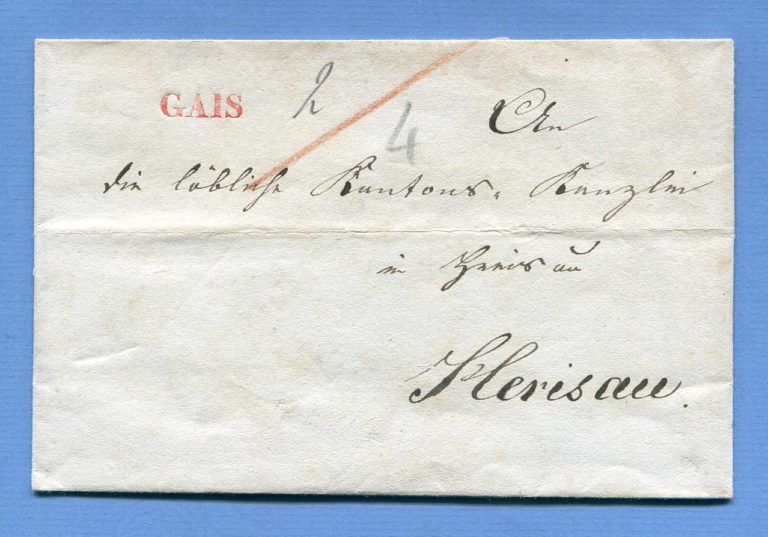 GAIS 2
4
An
die löbliche Kantons-Kanzlei
in Herisau
Herisau.